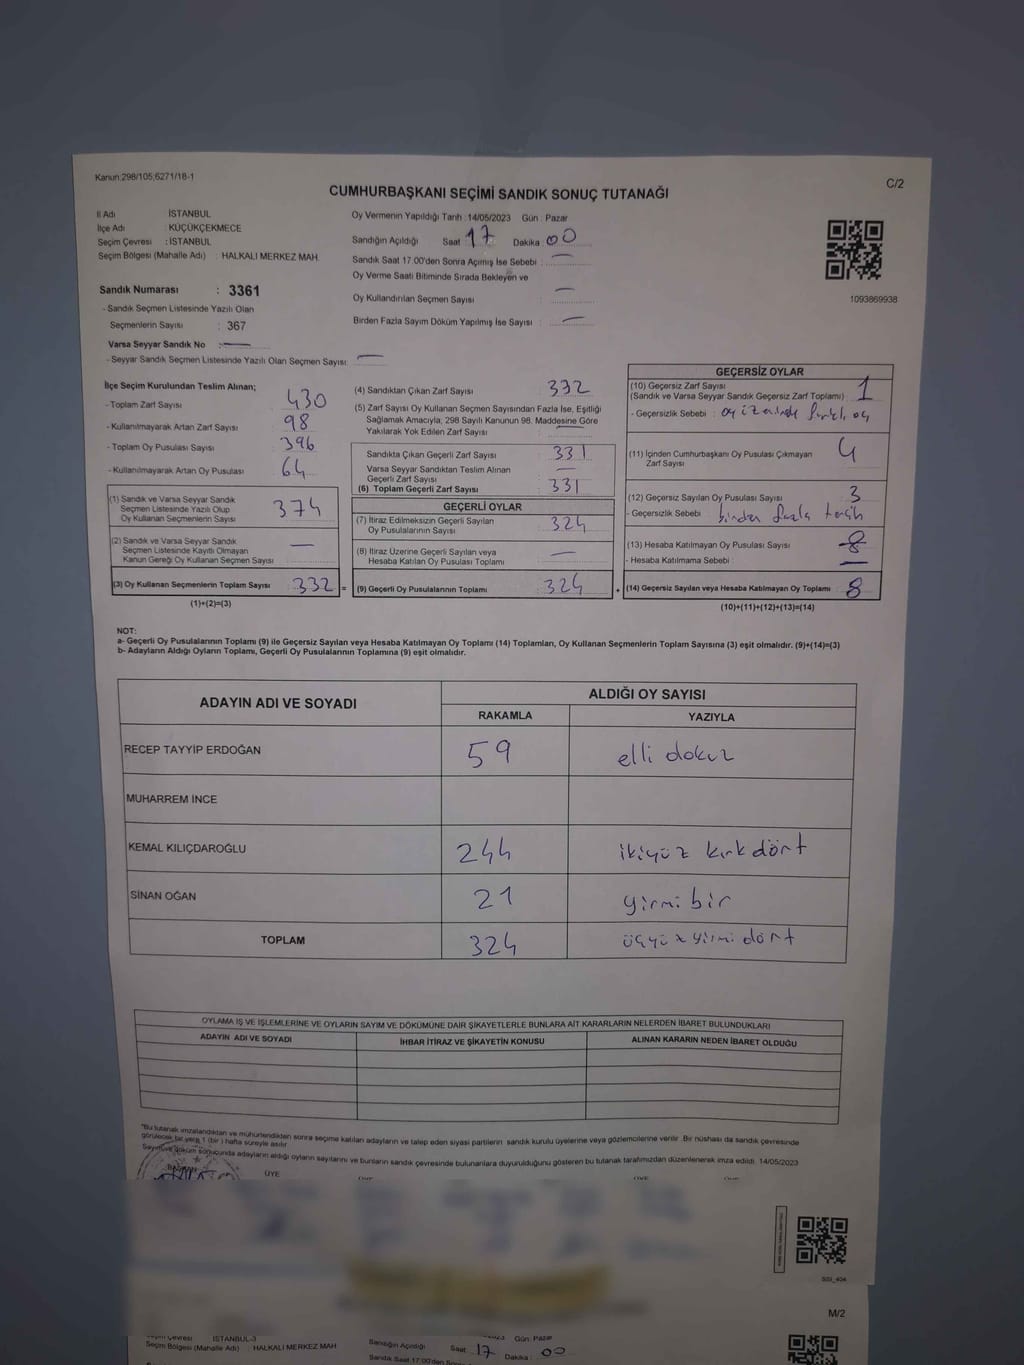 Kanun:298/105,6271/18-1
C/2
CUMHURBAŞKANI SEÇİMİ SANDIK SONUÇ TUTANAĞI
İl Adı İSTANBUL
İlçe Adı : KÜÇÜKÇEKMECE
Seçim Çevresi : İSTANBUL
Seçim Bölgesi (Mahalle Adı) : HALKALI MERKEZ MAH.
Sandık Numarası : 3361
- Sandık Seçmen Listesinde Yazılı Olan
Seçmenlerin Sayısı : 367
Varsa Seyyar Sandık No : —
- Seyyar Sandık Seçmen Listesinde Yazılı Olan Seçmen Sayısı: —
Oy Vermenin Yapıldığı Tarih :14/05/2023 Gün : Pazar
Sandığın Açıldığı Saat 17 Dakika 00
Sandık Saat 17.00'den Sonra Açılmış İse Sebebi : —
Oy Verme Saati Bitiminde Sırada Bekleyen ve
Oy Kullandırılan Seçmen Sayısı : —
Birden Fazla Sayım Döküm Yapılmış İse Sayısı : —
1093869938
İlçe Seçim Kurulundan Teslim Alınan;
- Toplam Zarf Sayısı : 430
- Kullanılmayarak Artan Zarf Sayısı : 98
- Toplam Oy Pusulası Sayısı : 396
- Kullanılmayarak Artan Oy Pusulası : 64
(1) Sandık ve Varsa Seyyar Sandık
Seçmen Listesinde Yazılı Olup
Oy Kullanan Seçmenlerin Sayısı : 374
(2) Sandık ve Varsa Seyyar Sandık
Seçmen Listesinde Kayıtlı Olmayan
Kanun Gereği Oy Kullanan Seçmen Sayısı : —
(3) Oy Kullanan Seçmenlerin Toplam Sayısı : 332 =
(1)+(2)=(3)
(4) Sandıktan Çıkan Zarf Sayısı : 332
(5) Zarf Sayısı Oy Kullanan Seçmen Sayısından Fazla İse, Eşitliği
Sağlamak Amacıyla; 298 Sayılı Kanunun 98. Maddesine Göre
Yakılarak Yok Edilen Zarf Sayısı :
Sandıkta Çıkan Geçerli Zarf Sayısı : 331
Varsa Seyyar Sandıktan Teslim Alınan
Geçerli Zarf Sayısı : —
(6) Toplam Geçerli Zarf Sayısı : 331
GEÇERLİ OYLAR
(7) İtiraz Edilmeksizin Geçerli Sayılan
Oy Pusulalarının Sayısı : 324
(8) İtiraz Üzerine Geçerli Sayılan veya
Hesaba Katılan Oy Pusulası Toplamı : —
(9) Geçerli Oy Pusulalarının Toplamı : 324 +
GEÇERSİZ OYLAR
(10) Geçersiz Zarf Sayısı : 1
(Sandık ve Varsa Seyyar Sandık Geçersiz Zarf Toplamı)
- Geçersizlik Sebebi :
(11) İçinden Cumhurbaşkanı Oy Pusulası Çıkmayan
Zarf Sayısı : 4
(12) Geçersiz Sayılan Oy Pusulası Sayısı : 3
- Geçersizlik Sebebi : birden fazla tercih
(13) Hesaba Katılmayan Oy Pusulası Sayısı : 8
- Hesaba Katılmama Sebebi : —
(14) Geçersiz Sayılan veya Hesaba Katılmayan Oy Toplamı : 8
(10)+(11)+(12)+(13)=(14)
NOT:
a- Geçerli Oy Pusulalarının Toplamı (9) ile Geçersiz Sayılan veya Hesaba Katılmayan Oy Toplamı (14) Toplamları, Oy Kullanan Seçmenlerin Toplam Sayısına (3) eşit olmalıdır. (9)+(14)=(3)
b- Adayların Aldığı Oyların Toplamı, Geçerli Oy Pusulalarının Toplamına (9) eşit olmalıdır.
ADAYIN ADI VE SOYADI
ALDIĞI OY SAYISI
RAKAMLA YAZIYLA
RECEP TAYYİP ERDOĞAN 59 elli dokuz
MUHARREM İNCE
KEMAL KILIÇDAROĞLU 244 ikiyüz kırk dört
SİNAN OĞAN 21 yirmi bir
TOPLAM 324 üçyüz yirmi dört
OYLAMA İŞ VE İŞLEMLERİNE VE OYLARIN SAYIM VE DÖKÜMÜNE DAİR ŞİKAYETLERLE BUNLARA AİT KARARLARIN NELERDEN İBARET BULUNDUKLARI
ADAYIN ADI VE SOYADI İHBAR İTİRAZ VE ŞİKAYETİN KONUSU ALINAN KARARIN NEDEN İBARET OLDUĞU
"Bu tutanak imzalandıktan ve mühürlendikten sonra seçime katılan adayların ve talep eden siyasi partilerin sandık kurulu üyelerine veya gözlemcilerine verilir. Bir nüshası da sandık çevresinde
görülecek bir yere 1 (bir) hafta süreyle asılır.
Sayım ve döküm sonucunda adayların aldığı oyların sayılarını ve bunların sandık çevresinde bulunanlara duyurulduğunu gösteren bu tutanak tarafımızdan düzenlenerek imza edildi. 14/05/2023
BAŞKAN ÜYE
M/2
Seçim Çevresi İSTANBUL-3 Gün: Pazar
Seçim Bölgesi (Mahalle Adı) : HALKALI MERKEZ MAH
Sandığın Açıldığı Saat 17 Dakika : 00